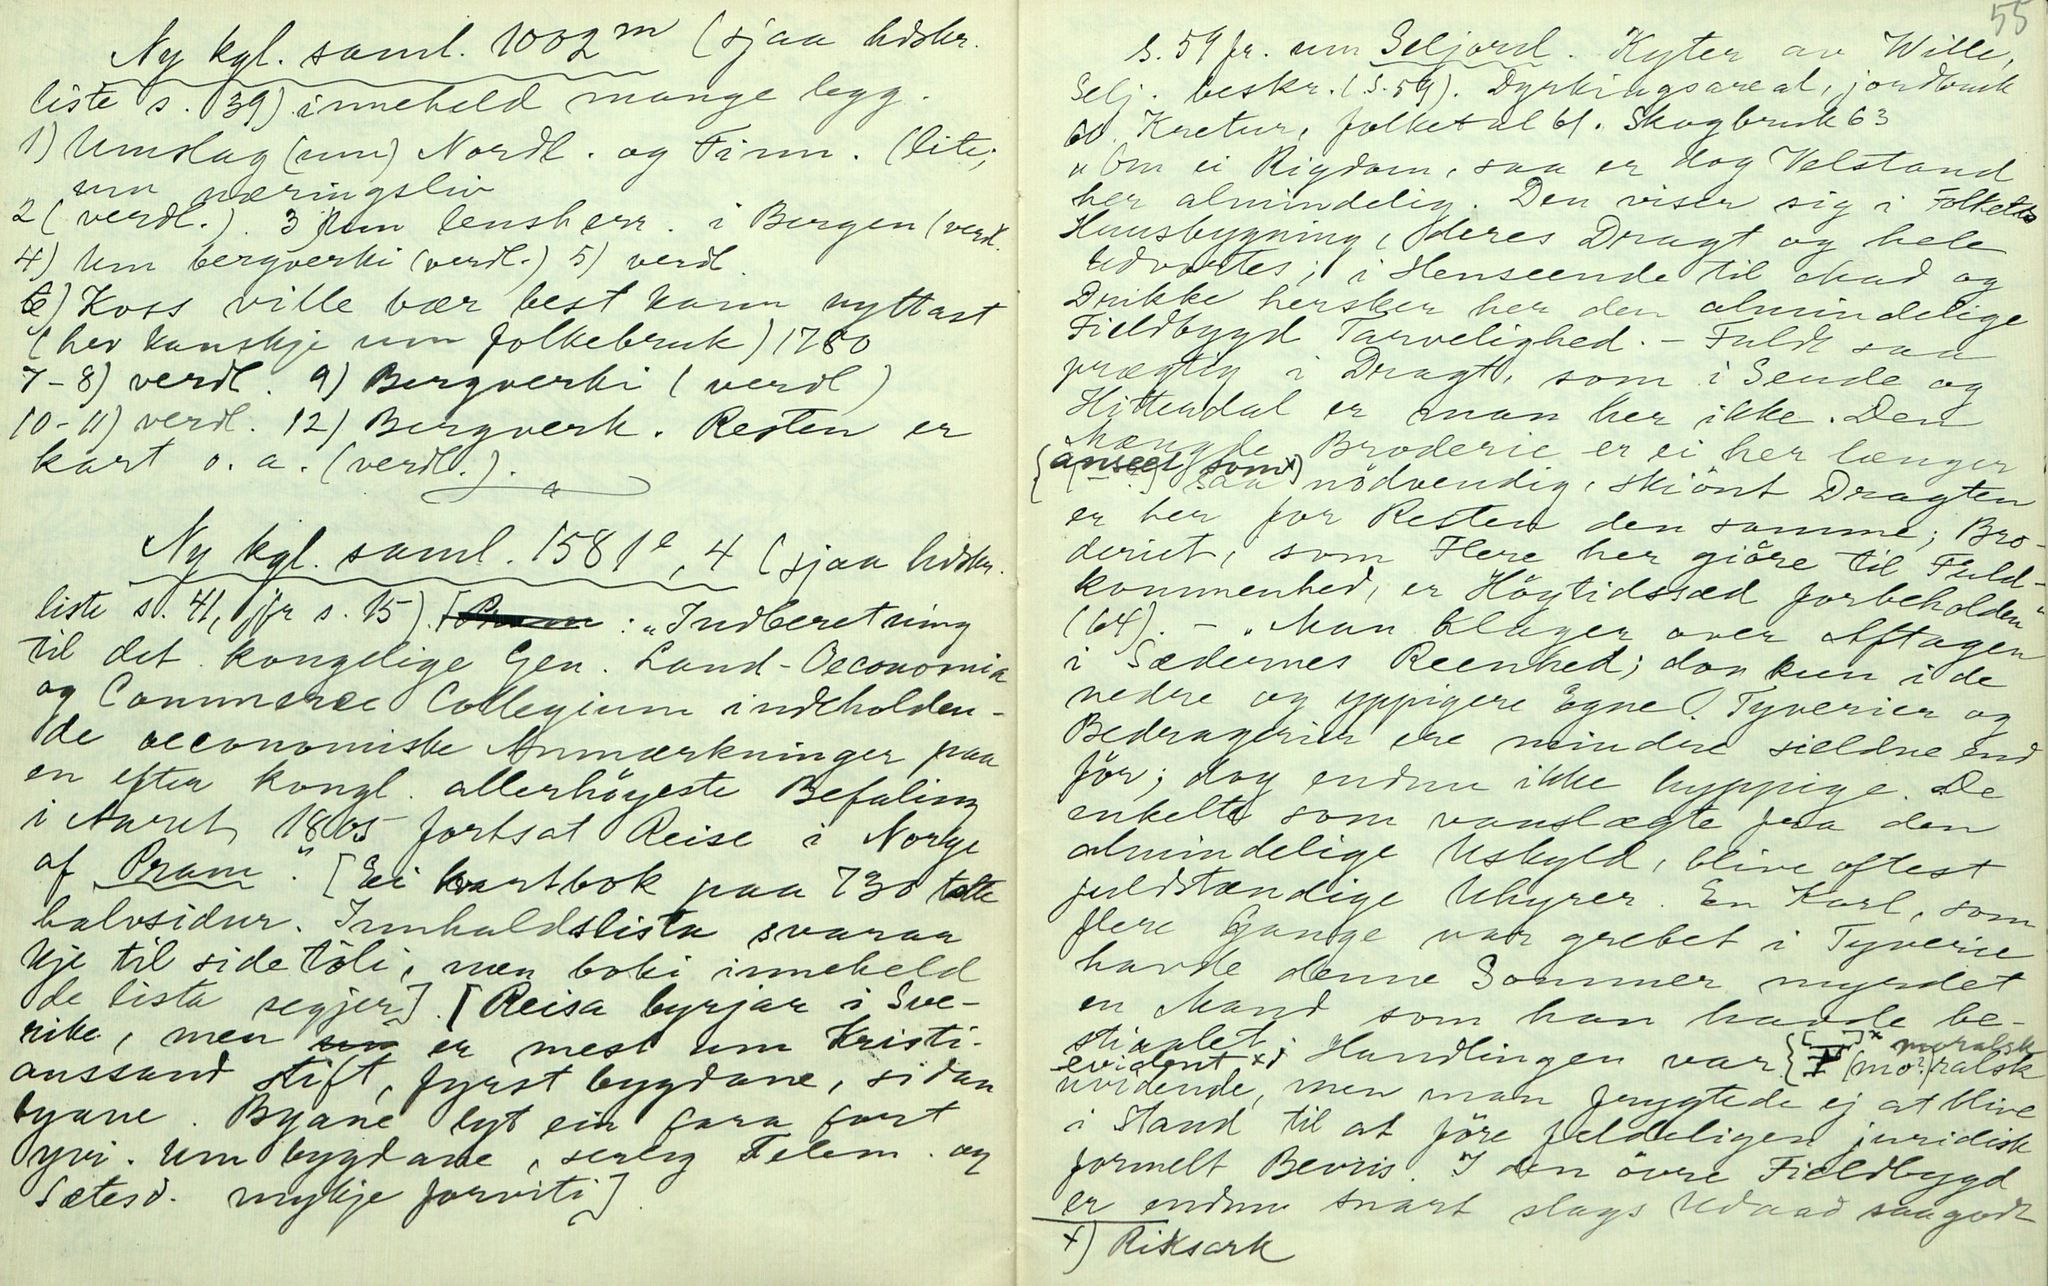 Ny kgl. saml. 1002 m (sjaa hdskr.
liste s. 39) inneheld mange legg.
1) Umslag (um) Nordl. og Finn. (lite;
um næringsliv
2 (verdl.). 3) Um lensherr. i Bergen (verdl.
4) Um bergverki (verdl.) 5) verdl.
6) Koss ville bær best kann nyttast
(her kanskje um folkebruk) 1780
7-8) verdl. 9) Bergverki (verdl)
10-11) verdl. 12) Bergverk. Resten er
kart o. a. (verdl.).
Ny kgl. saml. 1581 e, 4 (sjaa hdskr.
liste s. 41, jfr s. 15). [Pram : „Indberetning
til det kongelige Gen. Land-Oeconomie
og Commerce Collegium indeholden-
de oeconomiske Anmærkninger paa
en efter kongl. allerhöyeste Befaling
i Aaret 1805 fortsat Reise i Norge
af Pram". [Ei kvartbok paa 730 talte
halvsidur. Innhaldslista svarar
ikje til sidetöli, men boki inneheld
de lista segjer]. [Reisa byrjar i Sve-
rike, men er mest um Kristi-
anssand stift, fyrst bygdane, sidan
byane. Byane lyt ein fara fort
yvi. Um bygdane, serleg Telem. og
Sætesd. mykje forviti]
55
S. 59 fr. um Seljord. Kyter av Wille,
Selj. beskr. (s. 59). Dyrkingsareal, jordbruk
60. Kretur, folketal 61. Skogbruk 63
„Om ei Rigdom, saa er dog Velstand
her almindelig. Den viser sig i Folkets
Huusbygning, deres Dragt og hele
Udvortes; i Henseende til Mad og
Drikke hersker her den almindelige
Fieldbygd Tarvelighed. – Fuldt saa
prægtig i Dragt, som i Sende og
Hitterdal er man her ikke. Den
Mængde Broderie er ei her længer
{anseet (som x)
saa nödvendig, skiönt Dragten
er her for Resten den samme; Bro-
deriet, som Flere her giöre til Fuld-
kommenhed, er Höytidssæd forbeholden"
(64). – „Man klager over Aftagen
i Sædernes Reenhed; dog kun i de
nedre og yppigere Egne. Tyverier og
Bedragerier ere mindre sieldne end
för; dog endnu ikke hyppige. De
enkelte som vanslægte fra den
almindelige Uskyld, blive oftest
fuldstændige Uhyrer. En Karl, som
flere Gange var grebet i Tyverie
havde denne Sommer myrdet
en Mand som han havde be-
stiaalet; Handlingen var { [ ]x moralsk
evident x) (mo?)ralsk
uvidende, men man frygtede ej at blive
i Stand til at före fyldeligen juridisk
formelt Beviis. I den övre Fieldbygd
er endnu snart slags Udaad saagodt
x) Riksark